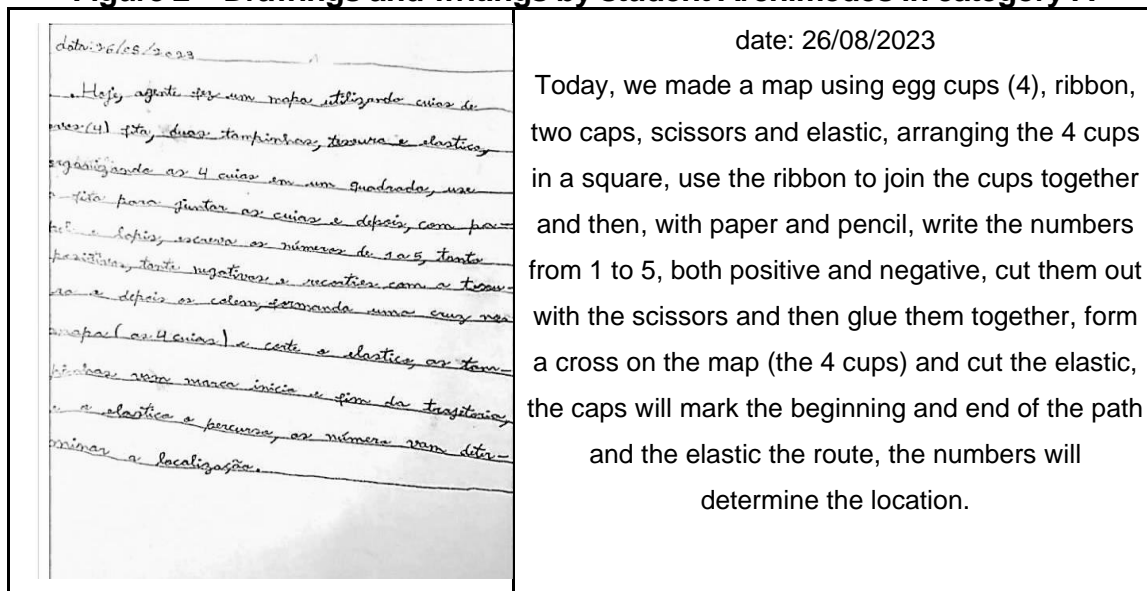 data: 26/08/2023
Hoje, agente fez um mapa utilizando cuias de
ovos (4) fita, duas tampinhas, tesoura e elastico,
organizando as 4 cuias em um quadrado, use
a fita para juntar as cuias e depois, com pa-
pel e lapis, escreva os números de 1 a 5, tanto
positivos, tanto negativos e recorties com a tesou-
ra e depois os colem, formando uma cruz nos
mapa (as 4 cuias) e corte o elastico, as tam-
pinhas vam marca inicio e fim da trajetoria,
e a elastico o percurso, os número vam deter-
minar a localização.
date: 26/08/2023
Today, we made a map using egg cups (4), ribbon,
two caps, scissors and elastic, arranging the 4 cups
in a square, use the ribbon to join the cups together
and then, with paper and pencil, write the numbers
from 1 to 5, both positive and negative, cut them out
with the scissors and then glue them together, form
a cross on the map (the 4 cups) and cut the elastic,
the caps will mark the beginning and end of the path
and the elastic the route, the numbers will
determine the location.